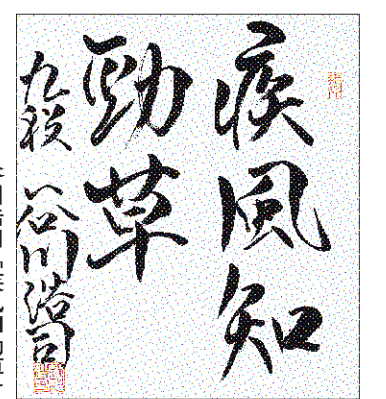 疾風知
勁草
九段 谷川浩司